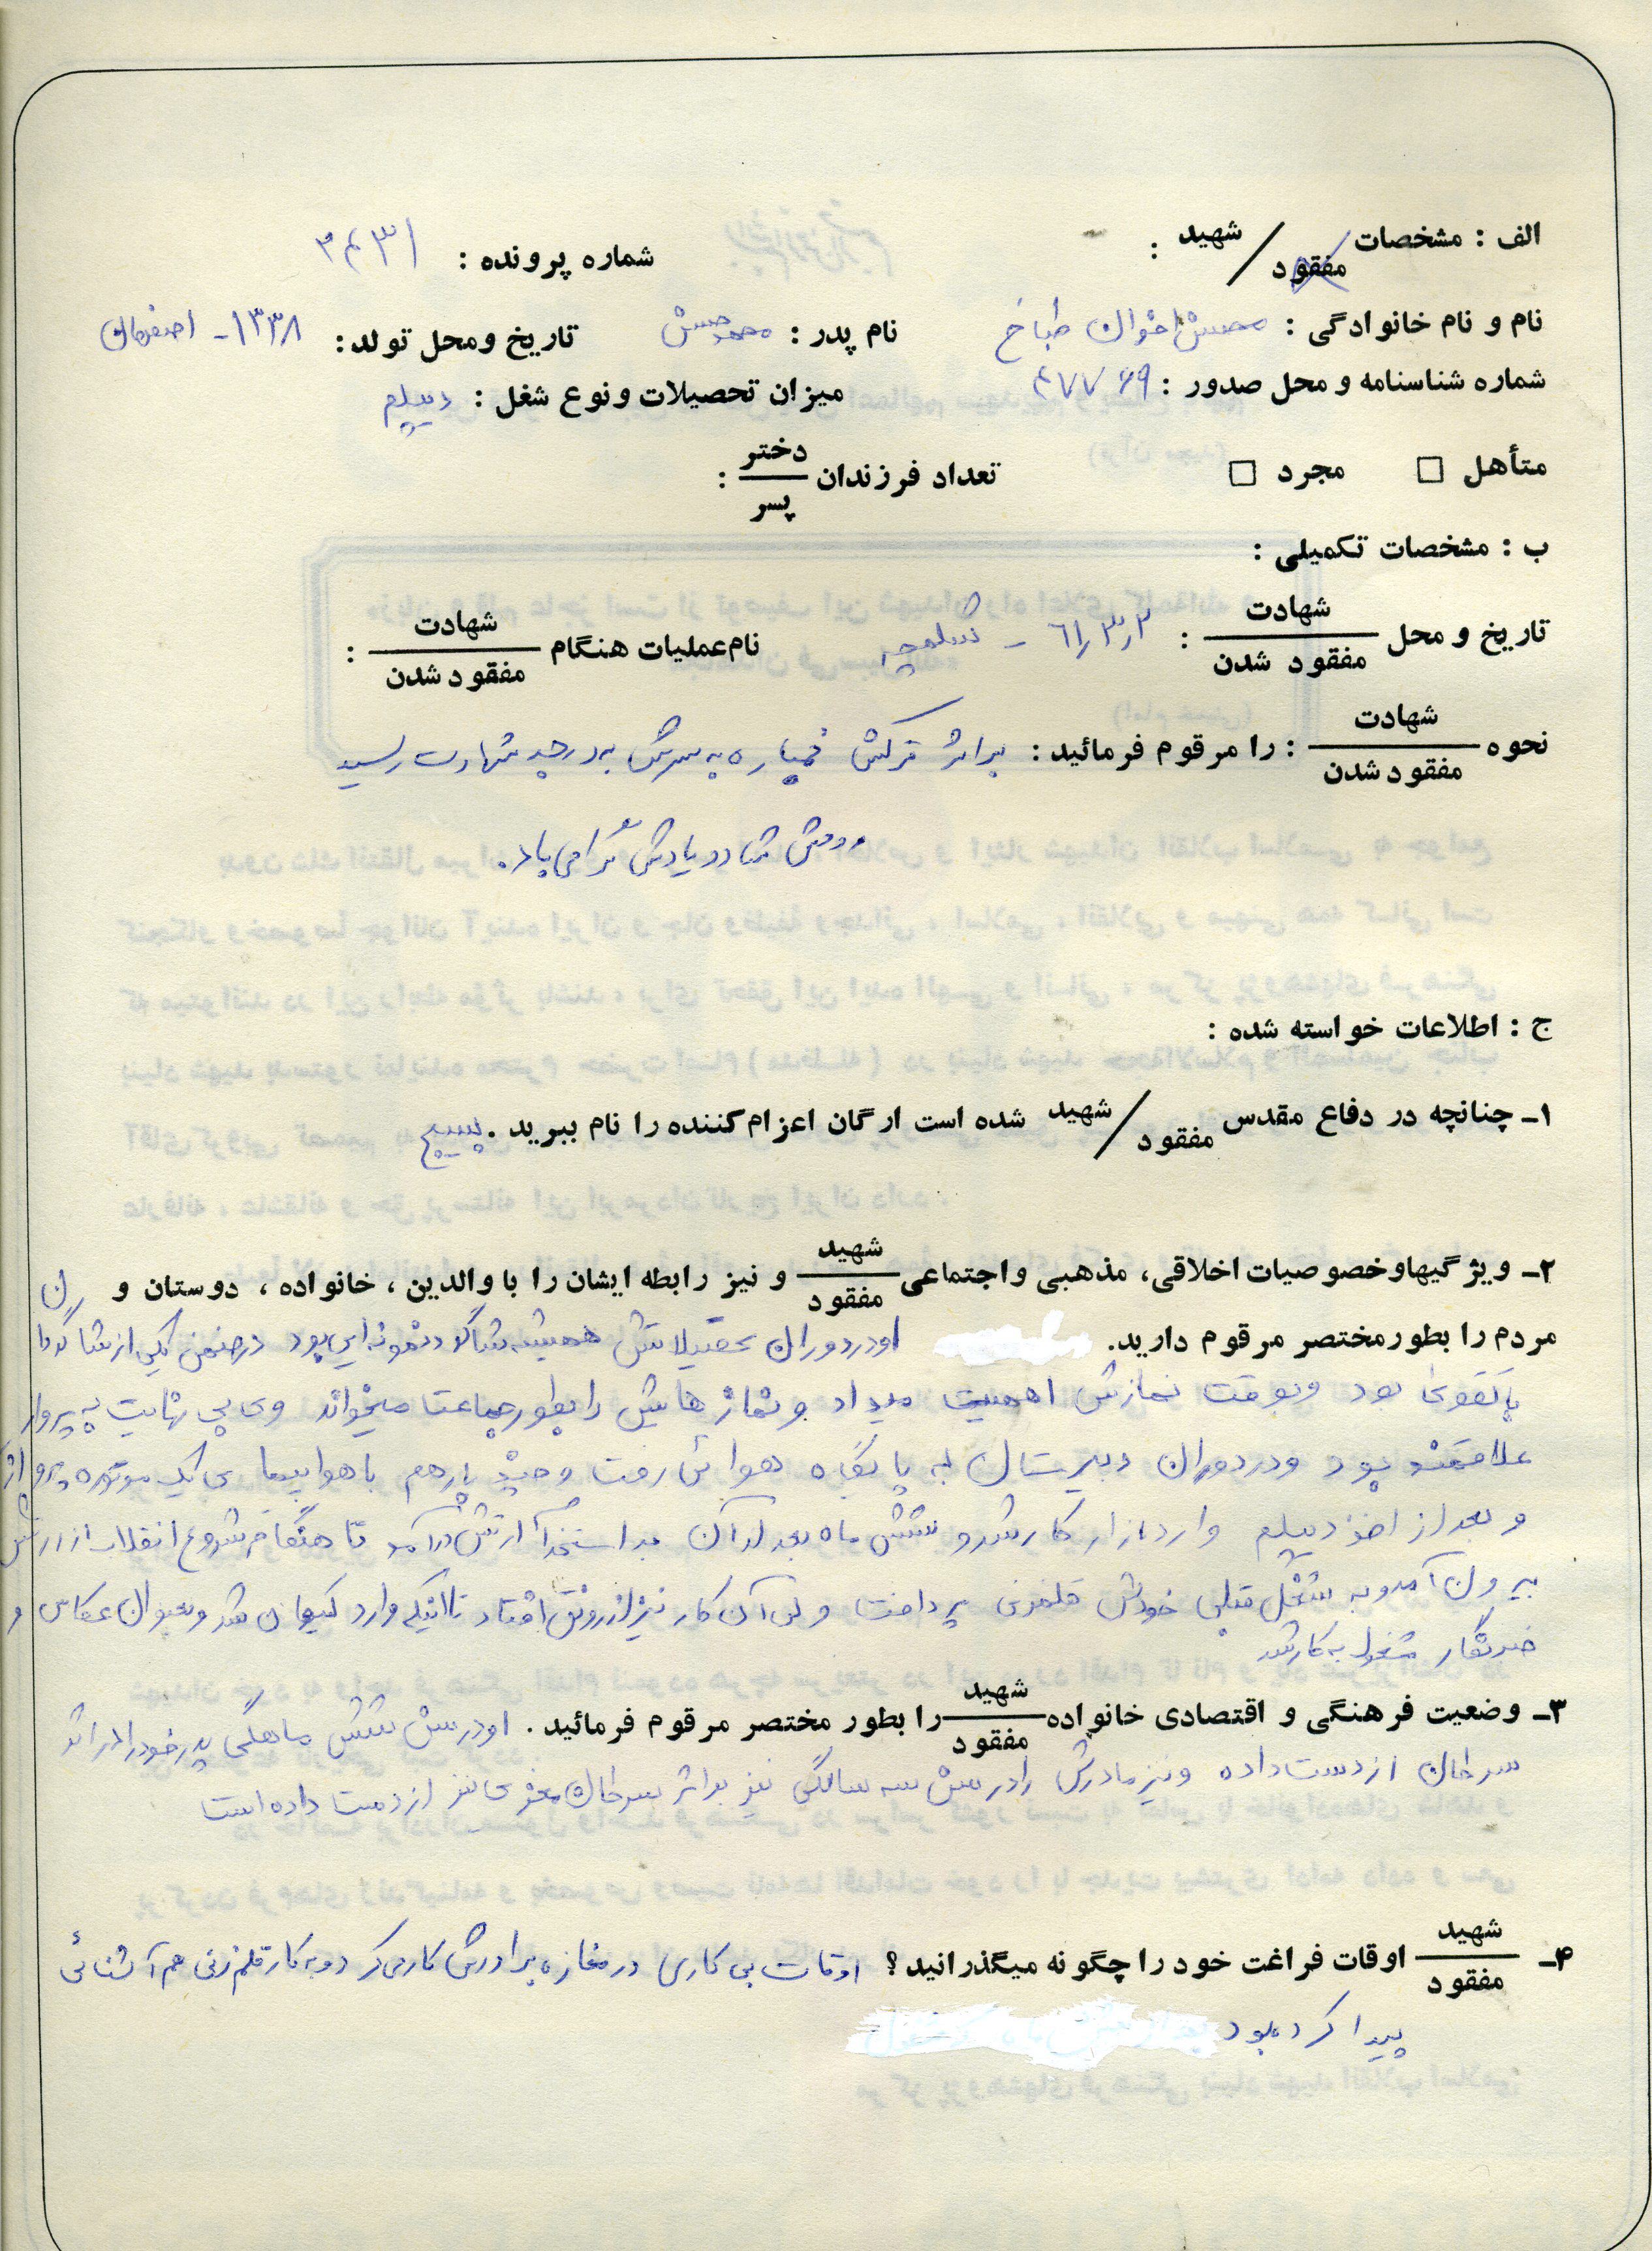 الف : مشخصات شهید / مفقود :
شماره پرونده : ۳۴۳۱
نام و نام خانوادگی : محسن اخوان طباخ
نام پدر : محمدحسن
تاریخ و محل تولد : ۱۳۳۸ - اصفهان
شماره شناسنامه و محل صدور : ۴۷۷۶۹
میزان تحصیلات و نوع شغل : دیپلم
متأهل □ مجرد □ تعداد فرزندان دختر / پسر :
ب : مشخصات تکمیلی :
تاریخ و محل شهادت / مفقود شدن : ۶۱,۳,۲ - شلمچه
نام عملیات هنگام شهادت / مفقود شدن :
نحوه شهادت / مفقود شدن : را مرقوم فرمائید : براثر ترکش خمپاره به سرش به درجه شهادت رسید
روحش شاد و یادش گرامی باد.
ج : اطلاعات خواسته شده :
۱ـ چنانچه در دفاع مقدس شهید / مفقود شده است ارگان اعزام کننده را نام ببرید . بسیج
۲ـ ویژگیها و خصوصیات اخلاقی، مذهبی و اجتماعی شهید / مفقود و نیز رابطه ایشان را با والدین ، خانواده ، دوستان و
مردم را بطور مختصر مرقوم دارید. او در دوران تحصیلاتش همیشه شاگرد نمونه ای بود در ضمن یکی از شاگردان
باتقوی بود و بوقت نمازش اهمیت میداد و نماز هایش را بطور جماعت میخواند وی بی نهایت به پرواز
علاقمند بود و در دوران دبیرستان به پایگاه هوائی رفت و چند بار هم با هواپیمای یک موتوره پرواز
و بعد از اخذ دیپلم وارد بازار کار شد و شش ماه بعد از آن به استخدام ارتش درآمد تا هنگام شروع انقلاب از ارتش
بیرون آمد و به شغل قبلی خودش قلمزنی پرداخت ولی آن کار نیز از رونق افتاد تا اینکه وارد کیهان شد و بعنوان عکاس و
خبرنگار مشغول به کار شد
۳ـ وضعیت فرهنگی و اقتصادی خانواده شهید / مفقود را بطور مختصر مرقوم فرمائید . او در سن شش ماهگی پدر خود را در اثر
سرطان از دست داده و نیز مادرش را در سن سه سالگی نیز براثر سرطان مغزی نیز از دست داده است
۴ـ شهید / مفقود اوقات فراغت خود را چگونه میگذرانید ؟ اوقات بی کاری در مغازه برادرش کار می کرد و به کار قلم زنی هم آشنائی
پیدا کرده بود